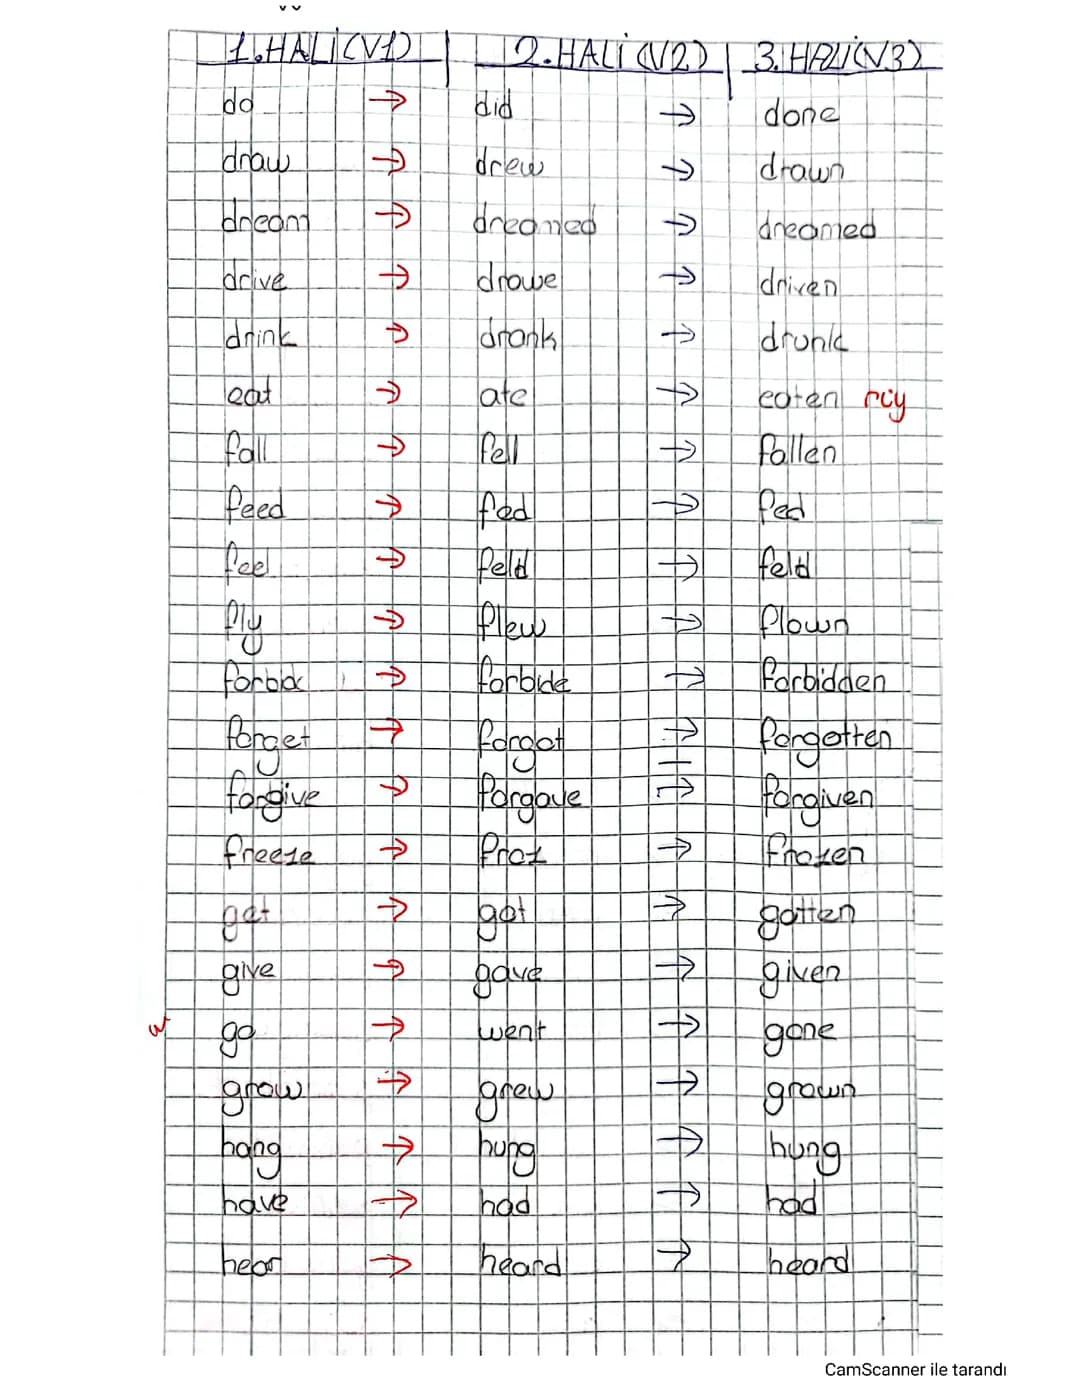 1.HALİ(V1) 2.HALİ(V2) 3.HALİ(V3)
do → did → done
draw → drew → drawn
dream → dreamed → dreamed
drive → drowe → driven
drink → drank → drunk
eat → ate → eaten
fall → fell → fallen
feed → fed → fed
feel → feld → feld
fly → flew → flown
forbid → forbide → forbidden
forget → forgot → forgotten
forgive → forgave → forgiven
freeze → froz → frozen
get → got → gotten
give → gave → given
go → went → gone
grow → grew → grown
hang → hung → hung
have → had → had
hear → heard → heard
CamScanner ile tarandı